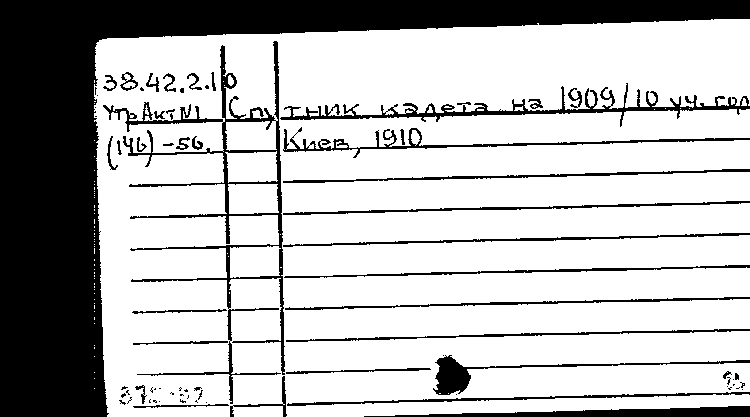 38.42.2.10
Утр.Акт N1 Спутник кадета на 1909/10 уч. год
(146)-56. Киев, 1910